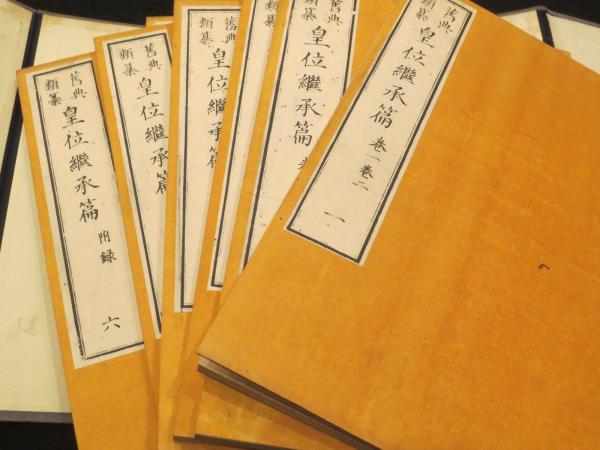 舊典
類纂
皇位繼承篇 卷一卷二 一
典
類纂
皇位繼承篇
纂
皇位繼
舊典
類纂
皇位繼承篇
舊典
類纂
皇位繼承
舊典
類纂
皇位繼承篇 附録 六